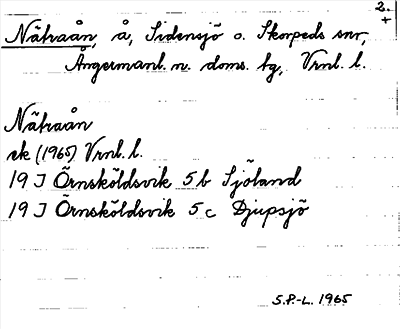 2.
+
Nätraån, å, Sidensjö o. Skorpeds snr,
Ångermanl. n. doms. tg, Vrnl. l.
Nätraån
ek (1965) Vrnl. l.
19 J Örnsköldsvik 5 b Sjöland
19 J Örnsköldsvik 5 c Djupsjö
S.P.-L. 1965